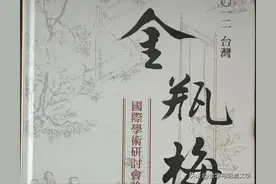 〇一二 台灣
金瓶梅
國際學術研討會